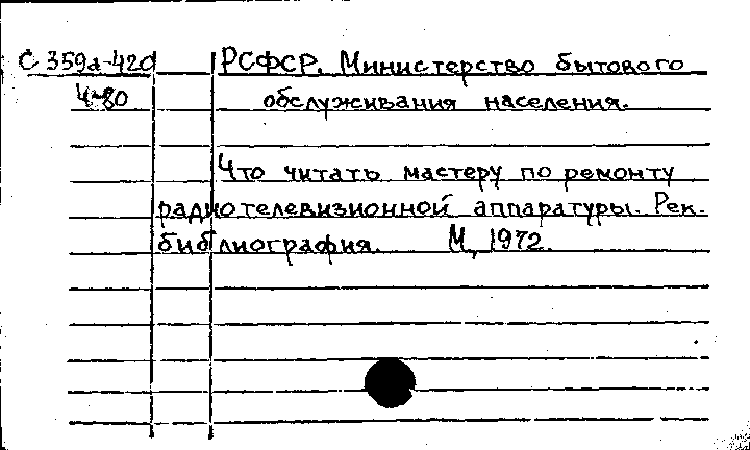 С 359а-420 РСФСР. Министерство бытового
4-80 обслуживания населения.
Что читать мастеру по ремонту
радиотелевизионной аппаратуры. Рек.
библиография. М, 1972.